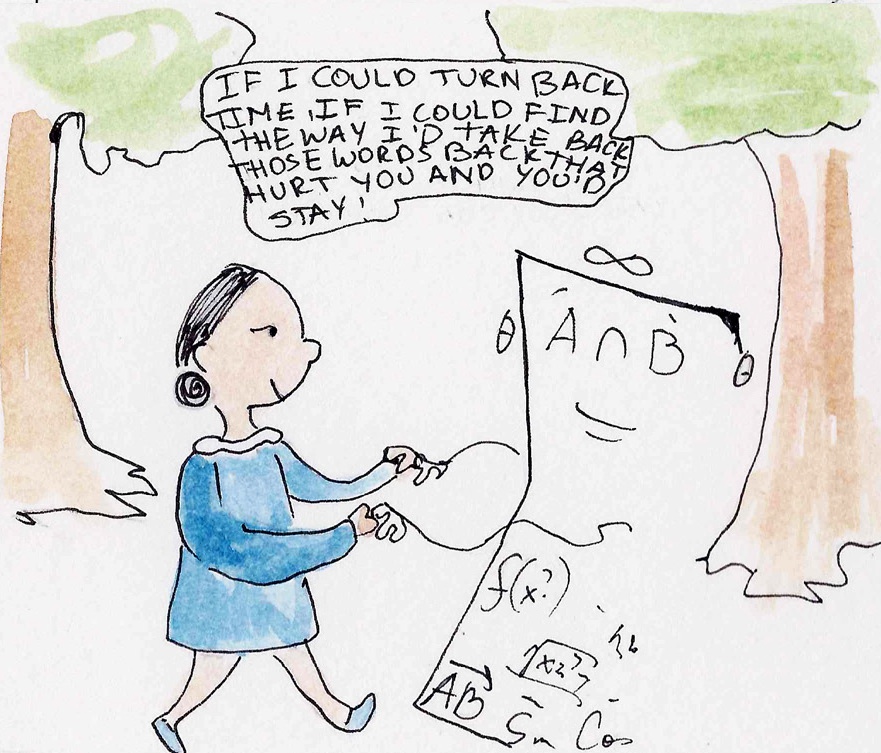 IF I COULD TURN BACK
TIME, IF I COULD FIND
THE WAY I'D TAKE BACK
THOSE WORDS BACK THAT
HURT YOU AND YOU'D
STAY!
∞
θ Â ∩ B̀ θ
f(x?)
AB
Cos